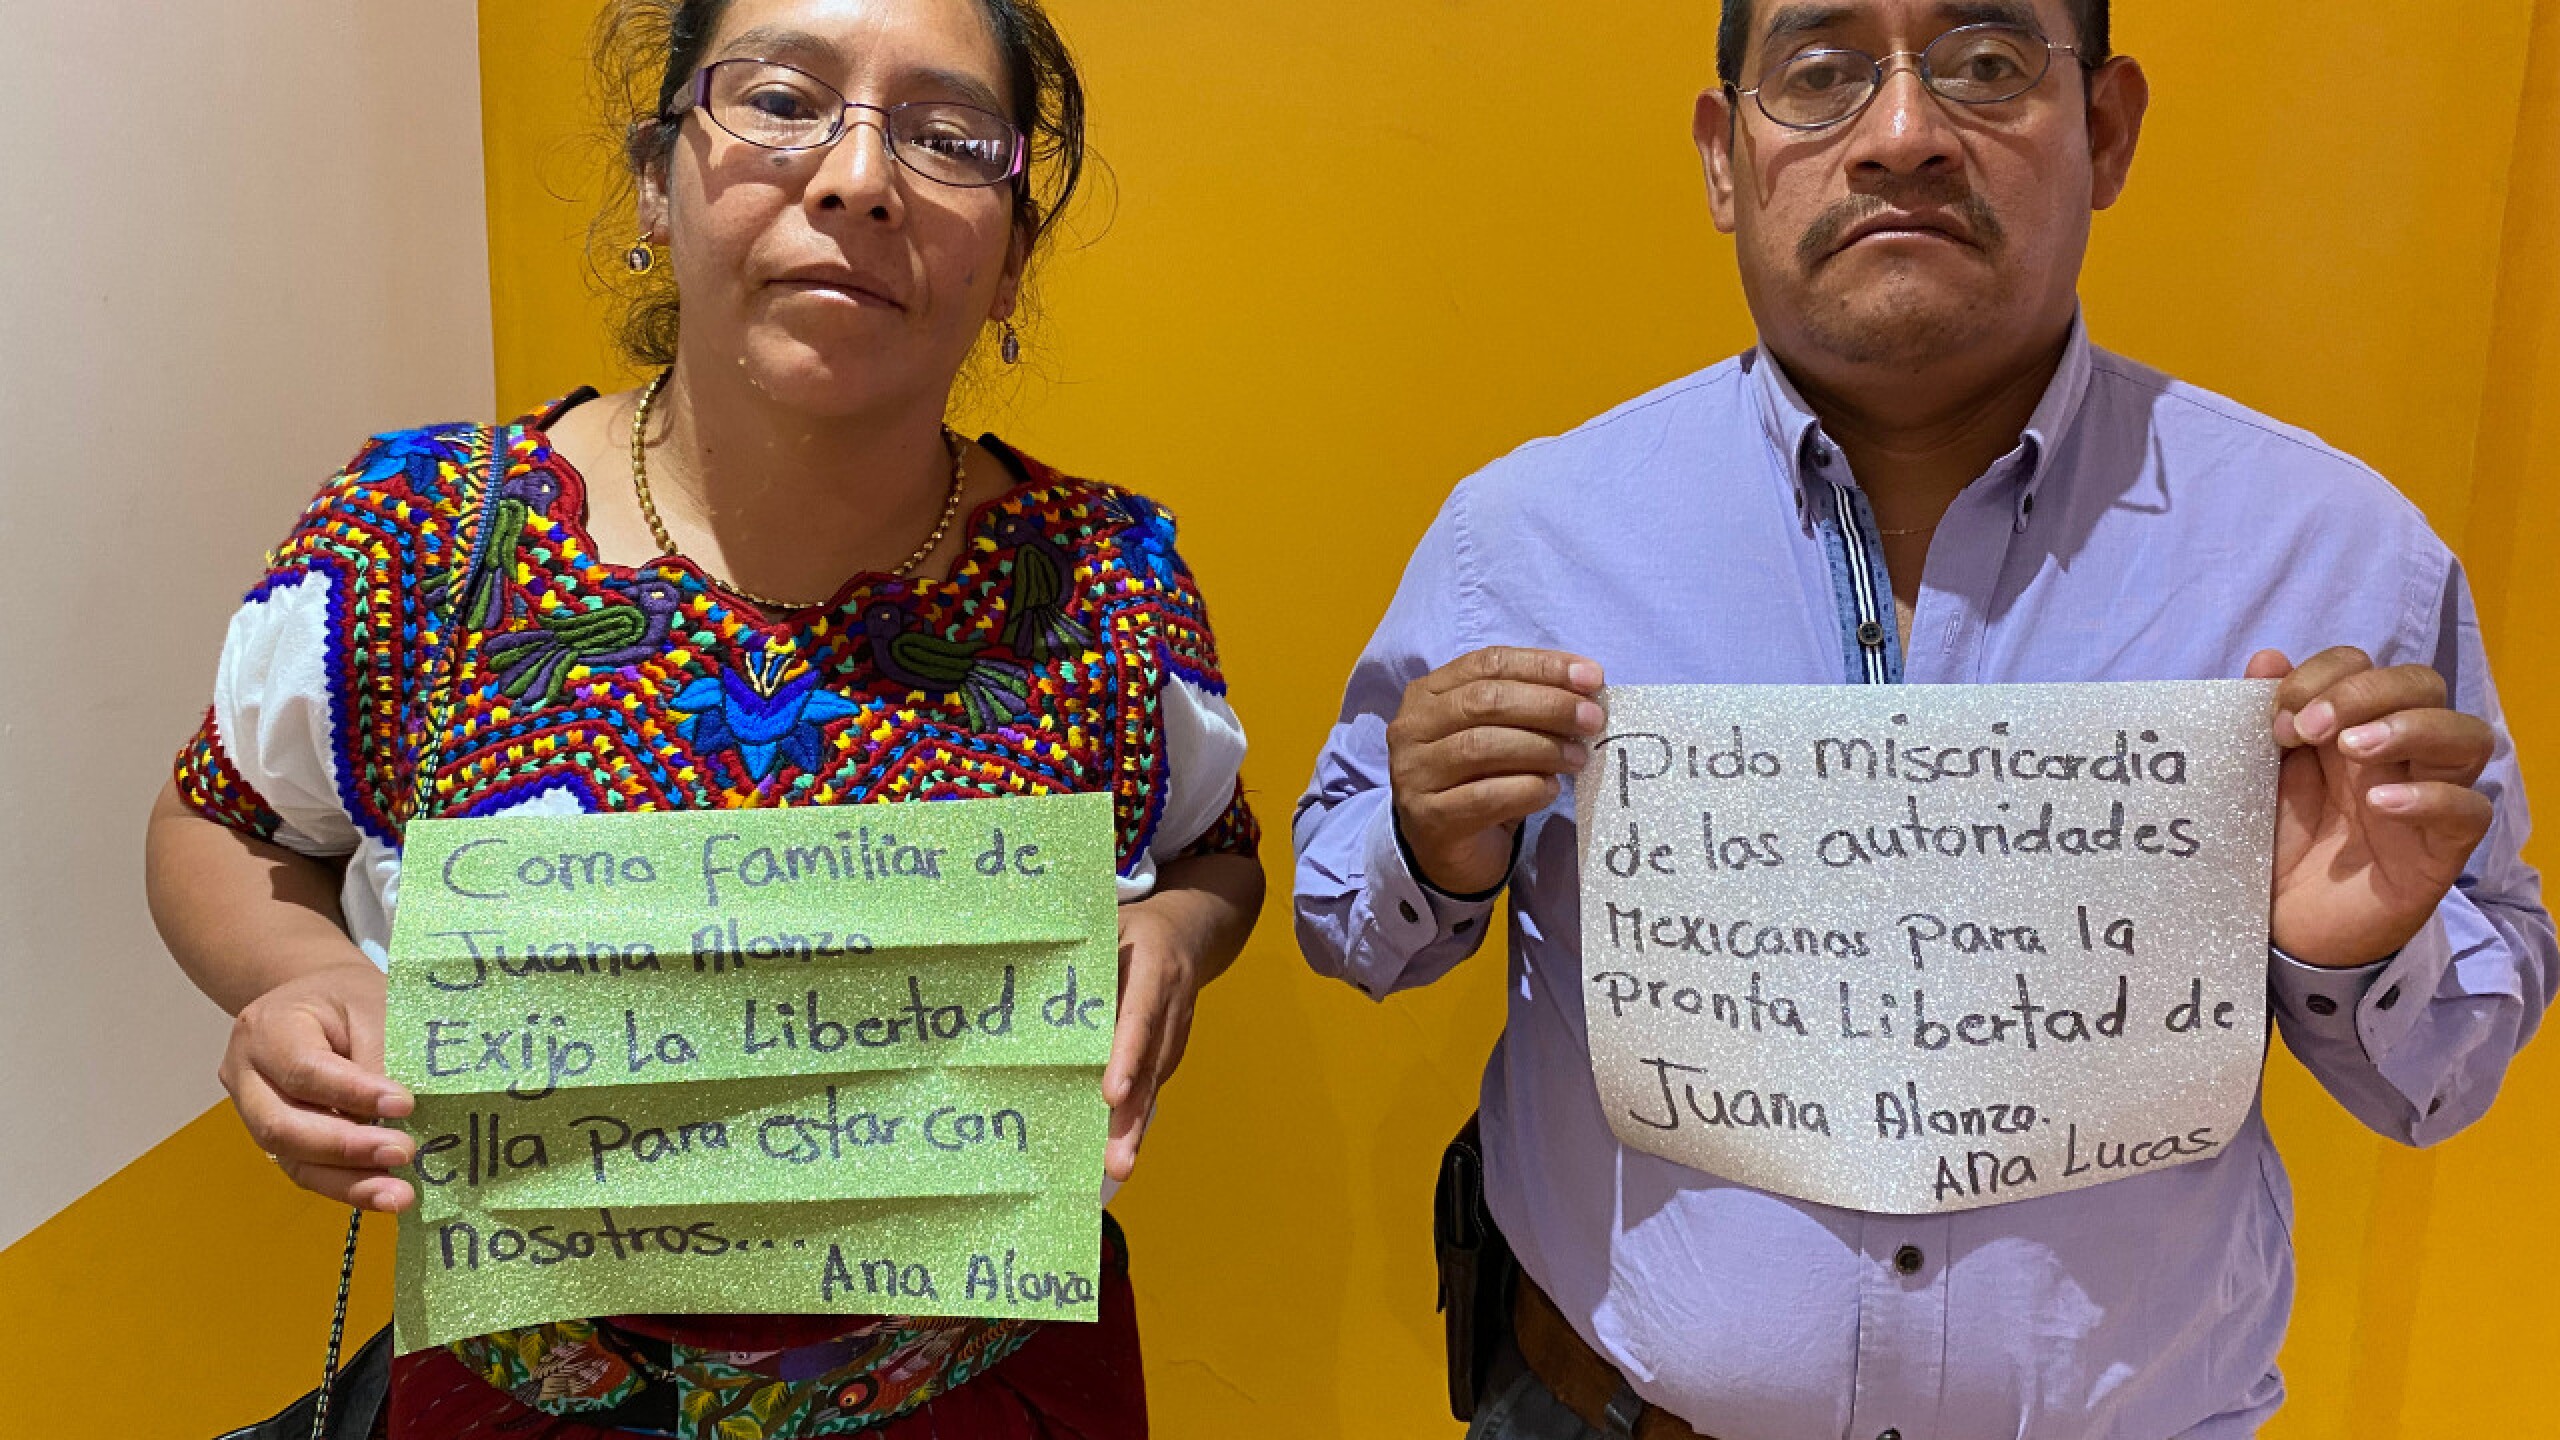 Como familiar de
Juana Alonzo
Exijo La Libertad de
ella para estar con
nosotros...
Ana Alonzo
Pido misericordia
de las autoridades
Mexicanas para la
pronta Libertad de
Juana Alonzo.
Ana Lucas